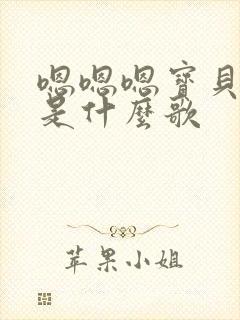 嗯嗯嗯寶貝
是什麼歌
苹果小姐